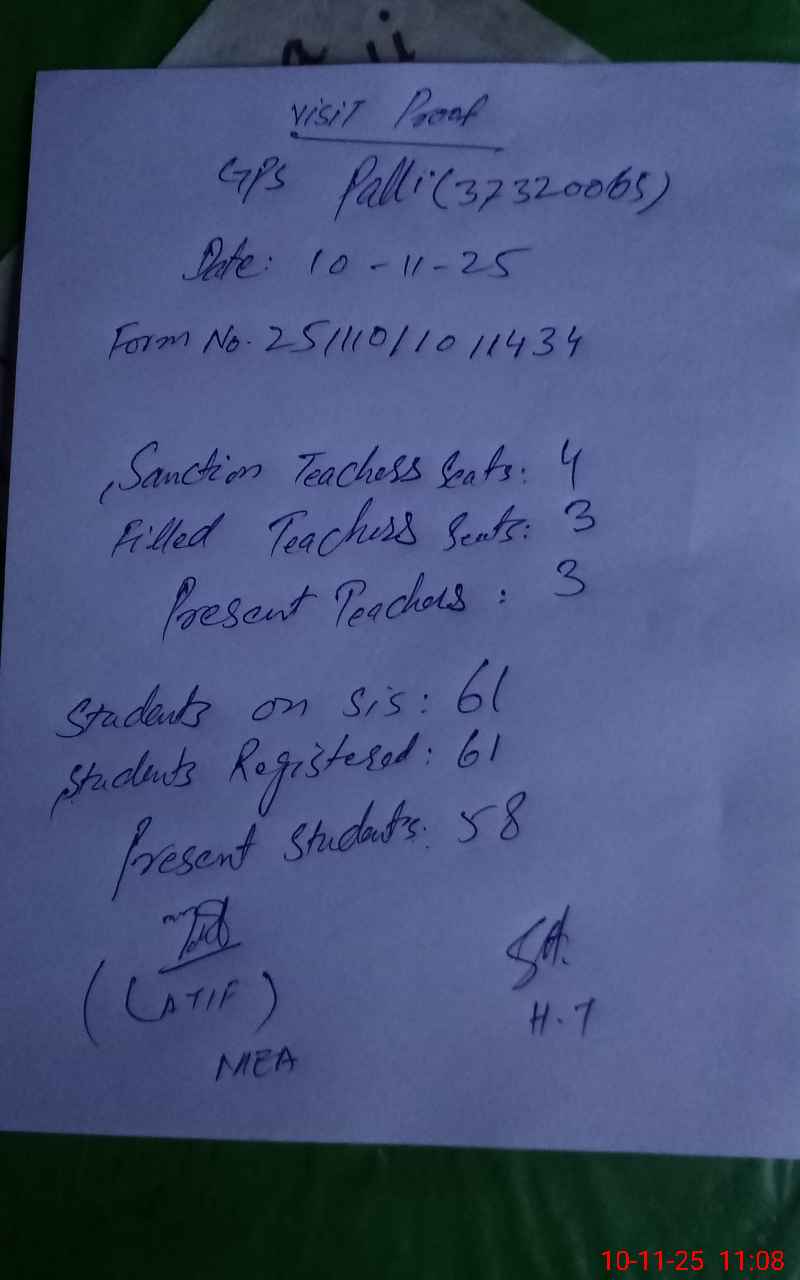 Visit Proof
GPS Palli (37320065)
Date: 10-11-25
Form No. 251110/1011434
Sanction Teachers Seats: 4
Filled Teachers Seats: 3
Present Teachers: 3
Students on sis: 61
Students Registered: 61
Present Students: 58
(LATIF)
MEA
H.T
10-11-25 11:08